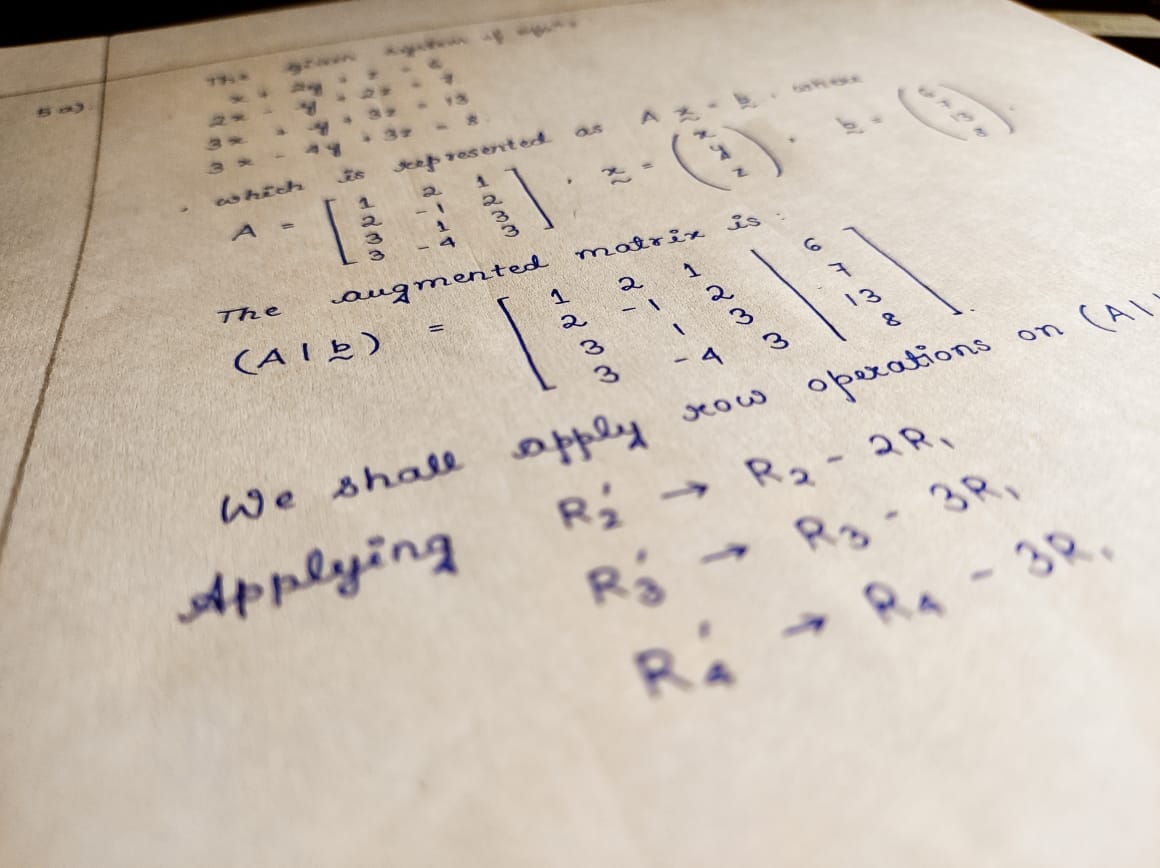 5 a)
The given system of eqns
x + 2y + z = 6
2x - y + 2z = 7
3x + y + 3z = 13
3x - 4y + 3z = 8.
which is represented as A x̰ = b̰, where
A = [ 1 2 1 ; 2 -1 2 ; 3 1 3 ; 3 -4 3 ], x̰ = ( x y z ), b̰ = ( 6 7 13 8 ).
The augmented matrix is:
(A | b̰) = [ 1 2 1 | 6 ; 2 -1 2 | 7 ; 3 1 3 | 13 ; 3 -4 3 | 8 ].
We shall apply row operations on (A |
Applying R₂' → R₂ - 2R₁
R₃' → R₃ - 3R₁
R₄' → R₄ - 3R₁